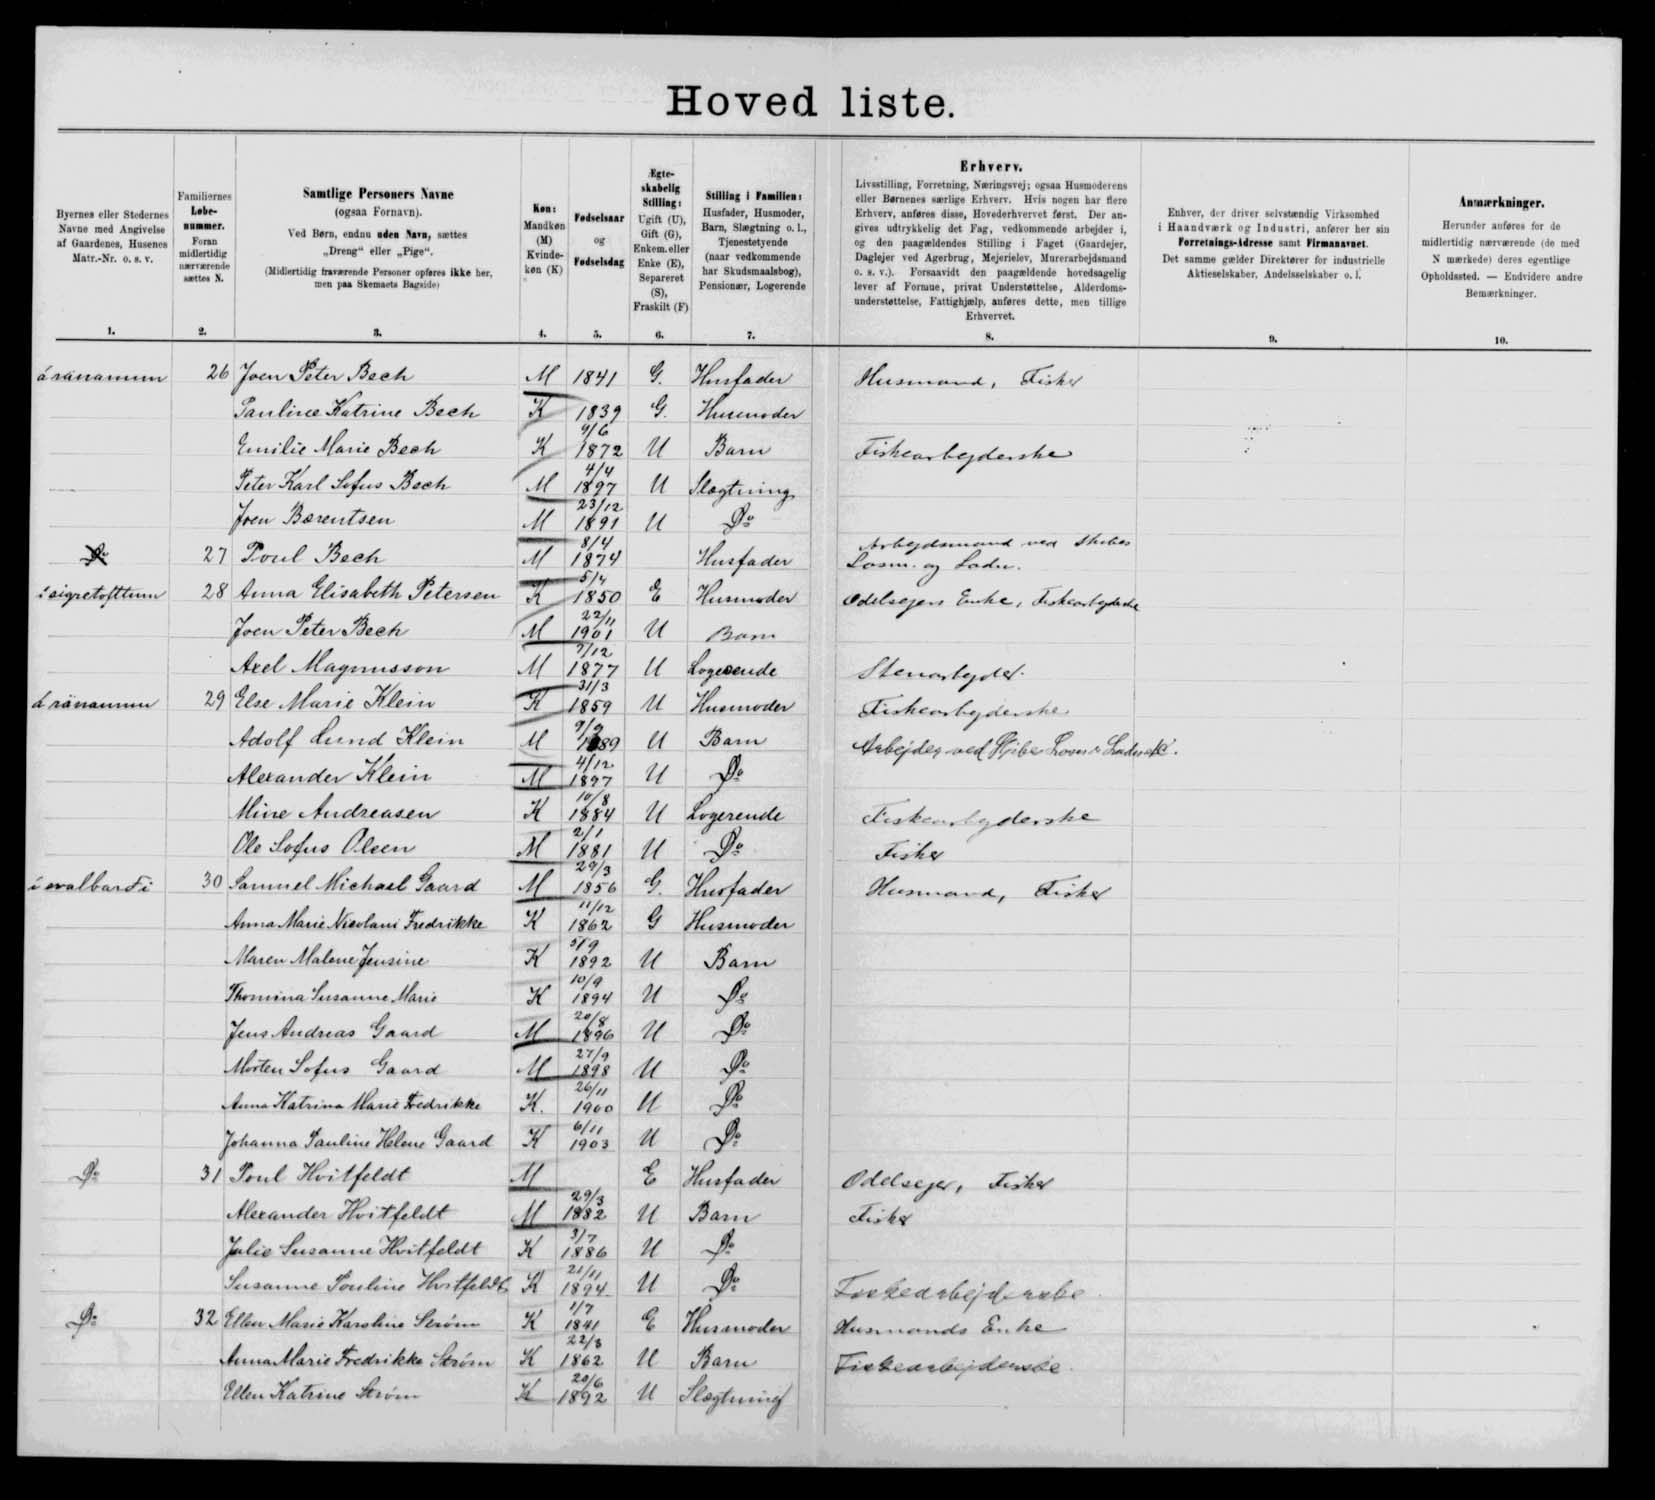 Hoved liste.
Byernes eller Stedernes Navne med Angivelse af Gaardenes, Husenes Matr.-Nr. o. s. v.
Familiernes Løbenummer. Foran midlertidig nærværende sættes N.
Samtlige Personers Navne (ogsaa Fornavn). Ved Børn, endnu uden Navn, sættes „Dreng“ eller „Pige“. (Midlertidig fraværende Personer opføres ikke her, men paa Skemaets Bagside)
Køn: Mandkøn (M) Kvindekøn (K)
Fødselsaar og Fødselsdag
Ægteskabelig Stilling: Ugift (U), Gift (G), Enkem. eller Enke (E), Separeret (S), Fraskilt (F)
Stilling i Familien: Husfader, Husmoder, Barn, Slægtning o. l., Tjenestetyende (naar vedkommende har Skudsmaalsbog), Pensionær, Logerende
Erhverv. Livsstilling, Forretning, Næringsvej; ogsaa Husmoderens eller Børnenes særlige Erhverv. Hvis nogen har flere Erhverv, anføres disse, Hovederhvervet først. Der angives udtrykkelig det Fag, vedkommende arbejder i, og den paagældendes Stilling i Faget (Gaardejer, Daglejer ved Agerbrug, Mejerielev, Murerarbejdsmand o. s. v.). Forsaavidt den paagældende hovedsagelig lever af Formue, privat Understøttelse, Alderdomsunderstøttelse, Fattighjælp, anføres dette, men tillige Erhvervet.
Enhver, der driver selvstændig Virksomhed i Haandværk og Industri, anfører her sin Forretnings-Adresse samt Firmanavnet. Det samme gælder Direktører for industrielle Aktieselskaber, Andelsselskaber o. l.
Anmærkninger. Herunder anføres for de midlertidig nærværende (de med N mærkede) deres egentlige Opholdssted. — Endvidere andre Bemærkninger.
1. 2. 3. 4. 5. 6. 7. 8. 9. 10.
26 Joen Peter Bech M 1841 G. Husfader Husmand, Fisker
Pauline Katrine Bech K 1839 G. Husmoder
Emilie Marie Bech K 9/6 1872 U Barn Fiskearbejderske
Peter Karl Sofus Bech M 4/4 1897 U Slægtning
Joen Bærentsen M 23/12 1891 U Do
Do 27 Poul Bech M 8/4 1874 Husfader Arbejdsmand ved Losn. og Ladn.
28 Anna Elisabeth Petersen K 5/4 1850 E Husmoder Odelsejers Enke, Fiskearbejderske
Joen Peter Bech M 22/11 1901 U Barn
Axel Magnusson M 7/12 1877 U Logerende Stenarbejder.
29 Else Marie Klein K 31/3 1859 U Husmoder Fiskearbejderske
Adolf Lund Klein M 9/9 1889 U Barn Arbejder ved
Alexander Klein M 4/12 1897 U Do
Mine Andreasen K 10/8 1884 U Logerende Fiskearbejderske
Ole Sofus Olsen M 2/1 1881 U Do Fisker
30 Samuel Michael Gaard M 29/3 1856 G. Husfader Husmand, Fisker
Anna Marie Nicolani Fredrikke K 11/12 1862 G Husmoder
Maren Malene Jensine K 5/9 1892 U Barn
Thomina Susanne Marie K 10/9 1894 U Do
Jens Andreas Gaard M 20/8 1896 U Do
Morten Sofus Gaard M 27/9 1898 U Do
Anna Katrina Marie Fredrikke K. 26/11 1900 U Do
Johanna Pauline Helene Gaard K 6/11 1903 U Do
Do 31 Poul Hvitfeldt M E Husfader Odelsejer, Fisker
Alexander Hvitfeldt M 29/3 1882 U Barn Fisker
Julie Susanne Hvitfeldt K 3/7 1886 U Do
Susanne Pouline Hvitfeldt K 21/11 1894 U Do Fiskearbejderske
Do 32 Ellen Marie Karoline Strøm K 1/7 1841 E Husmoder Husmands Enke
Anna Marie Fredrikke Strøm K 22/3 1862 U Barn Fiskearbejderske.
Ellen Katrine Strøm K 20/6 1892 U Slægtning